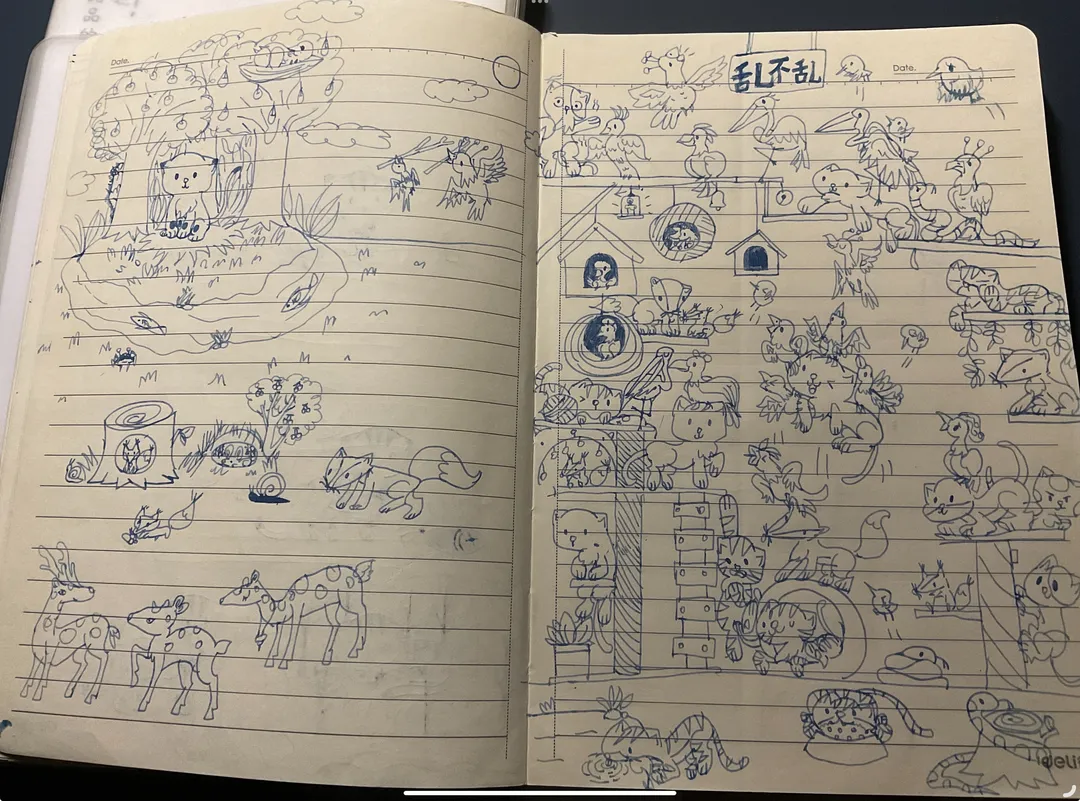 Date.
乱不乱
Date.
deli